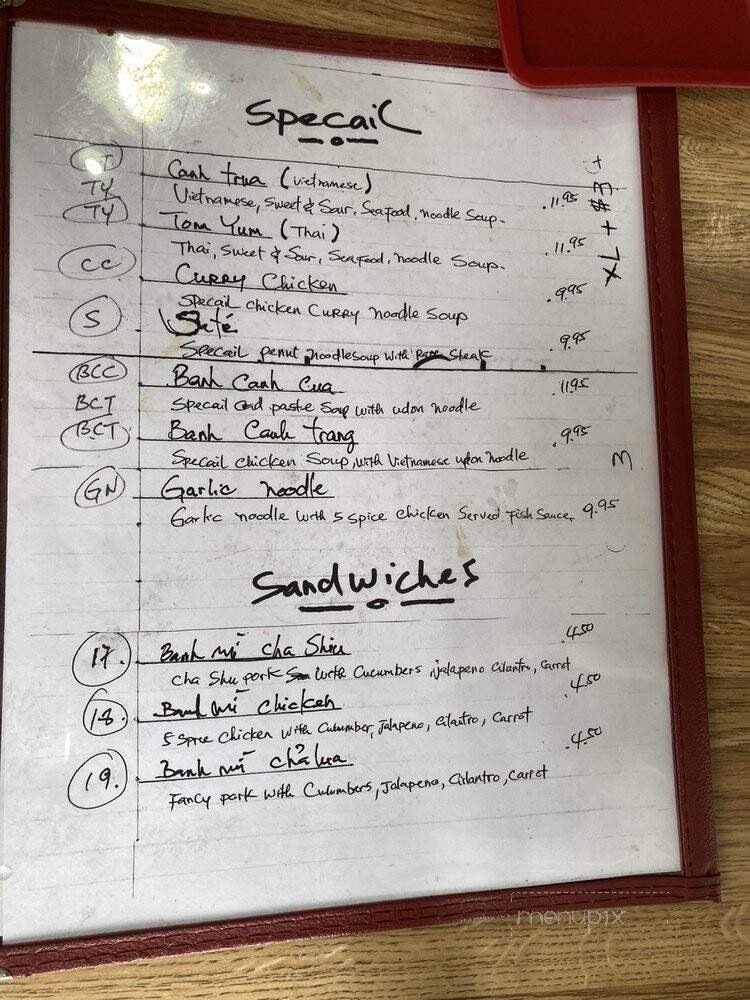 Specail
CT Canh trua (vietnamese)
TY Vietnamese, sweet & Sour, Seafood, noodle Soup. .11.95
TY Tom Yum (Thai)
Thai, sweet & Sour, Seafood, noodle Soup. .11.95
CC Curry Chicken
Specail chicken Curry noodle Soup .9.95
S Saté
Specail penut noodle Soup with Rare Steak .9.95
BCC Banh Canh Cua
BCT Specail paste Soup with udon noodle .11.95
BCT Banh Canh trang
Specail chicken Soup, with Vietnamese udon noodle .9.95
M
GN Garlic noodle
Garlic noodle with 5 spice chicken Served Fish Sauce, 9.95
Sandwiches
17. Banh mì cha Shiu
cha Shu pork with Cucumbers, jalapeno Cilantro, Carrot .4.50
18. Banh mì chicken
5 spice chicken with Cucumber, Jalapeno, Cilantro, Carrot .4.50
19. Banh mì chả lua
Fancy pork with Cucumbers, Jalapeno, Cilantro, Carrot .4.50
menupix